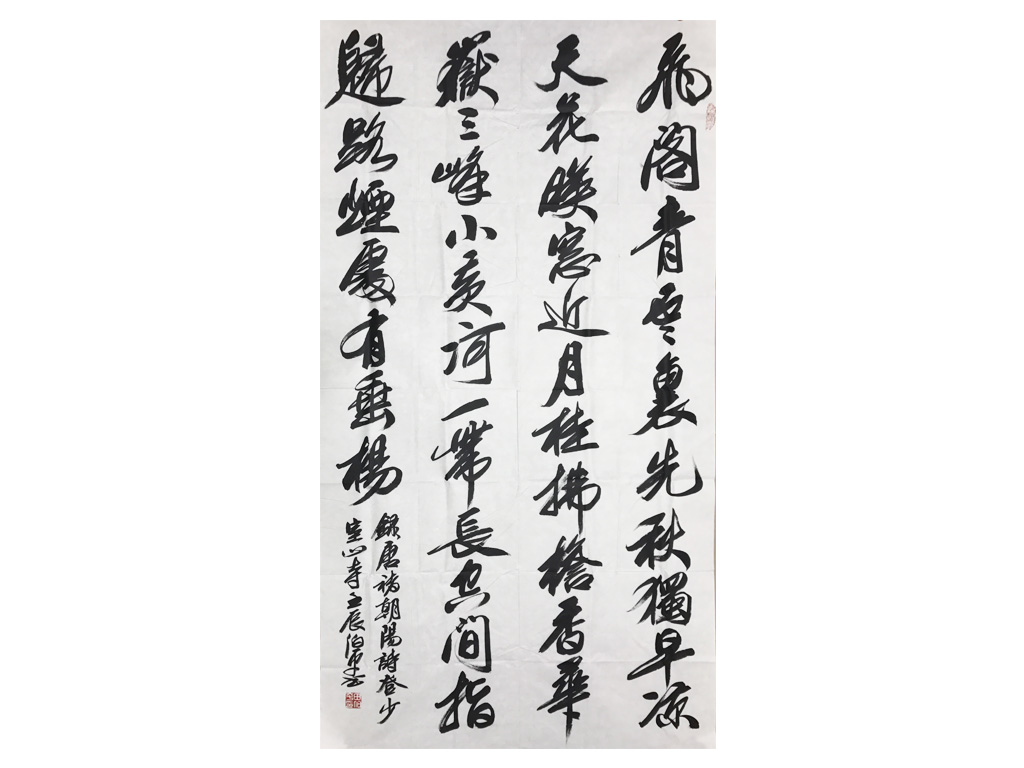 飛閣青雲裏先秋獨早凉
天花暎窓近月桂拂檐香華
嶽三峰小黃河一帶長空間指
歸路煙處有垂楊
錄唐褚朝陽詩登少
室山寺壬辰泊書